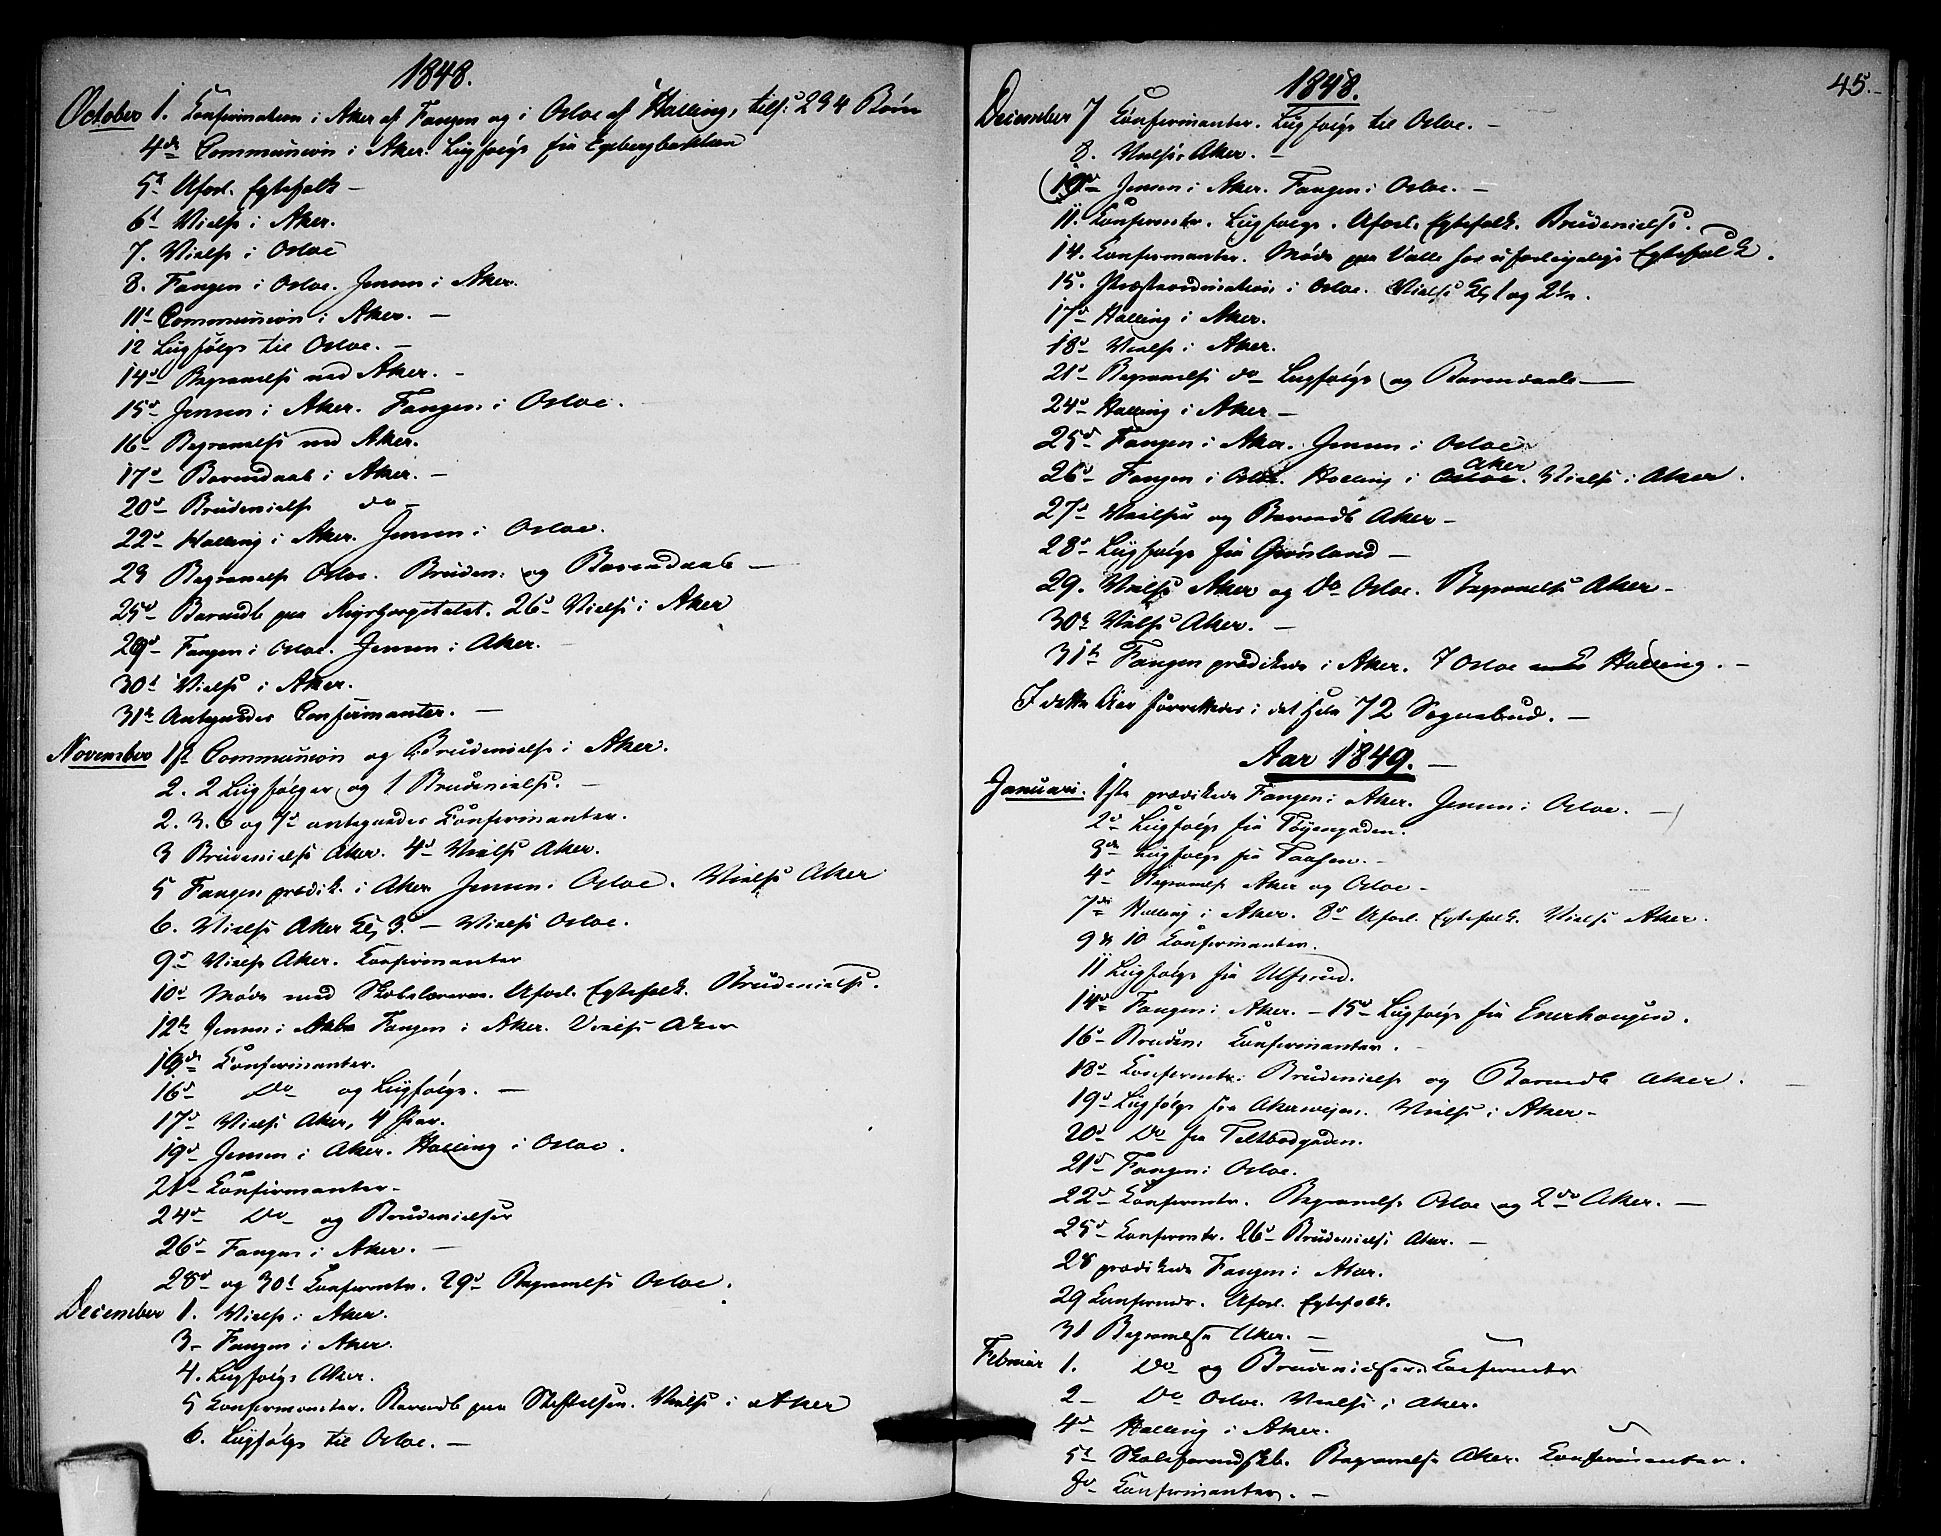 1848.
October 1. Confirmation i Aker af Fangen og i Osloe af Halling, tils: 294 Børn
4de Communion i Aker. Liigfølge fra Egebergbakken
5t Uforl. Egtefolk –
6t Vielse i Aker.
7. Vielse i Osloe
8. Fangen i Osloe. Jensen i Aker.
11t Communion i Aker. –
12 Liigfølge til Osloe. –
14de Begravelse ved Aker. –
15de Jensen i Aker. Fangen i Osloe.
16de Begravelse ved Aker.
17de Barnedaab i Aker. –
20de Brudevielse do
22de Halling i Aker. Jensen i Osloe.
23 Begravelse Osloe. Bruden: og Barnedaab –
25de Barnedb paa 26de Vielse i Aker
29de Fangen i Osloe. Jensen i Aker. –
30t Vielse i Aker.
31te Antegnedes Confirmanter. –
November 1ste Communion og Brudevielse i Aker.
2. 2 Liigfølger og 1 Brudevielse. –
2. 3. 6 og 7de antegnedes Confirmanter.
3 Brudevielse Aker. 4de Vielse Aker.
5 Fangen prædik. i Aker Jensen i Osloe. Vielse Aker
6. Vielse Aker Kl. 3. – Vielse Osloe.
9de Vielse Aker. Confirmanter
10de Møde med Skolelærerne. Uforl. Egtefolk. Brudevielse.
12te Jensen i Fangen i Aker. Vielse Aker
Confirmanter.
16de Do og Liigfølge. –
17de Vielse Aker, 4 Par.
19de Jensen i Aker. Halling i Osloe.
21de Confirmanter –
24de Do og Brudevielser
26de Fangen i Aker. –
28de og 30t Confirmtr. 29de Begravelse Osloe.
December 1. Vielse i Aker.
3– Fangen i Aker.
4. Liigfølge Aker.
5 Confirmanter. Barnedb paa Stiftelsen. Vielse i Aker
6. Liigfølge til Osloe. –
1848. 45.
December 7 Confirmanter. Liigfølge til Osloe. –
8. Vielse Aker. –
10de Jensen i Aker. Fangen i Osloe. –
11. Confirmtr. Liigfølge. Uforl. Egtefolk. Brudevielse.
14. Confirmanter. Møde paa Valle for uforligelige Egtefolk.
15. Præsteordination i Osloe. Vielse Kl. 1 og 2
17de Halling i Aker.
18de Vielse i Aker.
21de Begravelse do Liigfølge og Barnedaab –
24de Halling i Aker –
25de Fangen i Aker. Jensen i Osloe
26de Fangen i Osloe. Halling i Osloe Aker. Vielse i Aker.
27de Vielser og Barnedb Aker –
28de Liigfølge fra Grønland –
29. Vielse Aker og Do Osloe. Begravelse Aker –
30te Vielse Aker. –
31te Fangen prædikede i Aker. I Osloe Halling. –
I dette Aar forrettedes i det hele 72 Sognebud. –
Aar 1849. –
Januari. 1ste prædikede Fangen i Aker. Jensen i Osloe. –
2de Liigfølge fra Tøyengaden.
3de Liigfølge fra Taasen. –
4de Begravelse Aker og Osloe –
7de Halling i Aker. 8de Uforl. Egtefolk. Vielse Aker.
9de 10 Confirmanter.
11 Liigfølge fra Ulfsrud.
14de Fangen i Aker. – 15de Liigfølge fra Enerhougen.
16de Bruden: Confirmanter. –
18de Confirmtr: Brudevielse og Barnedb Aker. –
19de Liigfølge fra Akersveien. Vielse i Aker –
20de Do fra Teltbodgaden.
21de Fangen i Osloe.
22de Confirmtr. Begravelse Osloe og 2de Aker. –
25de Confirmtr. 26de Brudevielse Aker. –
28 prædikede Fangen i Aker.
29 Confirmtr. Uforl. Egtefolk.
31 Begravelse Aker. –
Februar 1. Do og Brudevielser Confirmtr
2– Do Osloe. Vielse i Aker.
4de Halling i Aker.
5te Begravelse Aker. Confirmanter.
8de Confirmanter. –